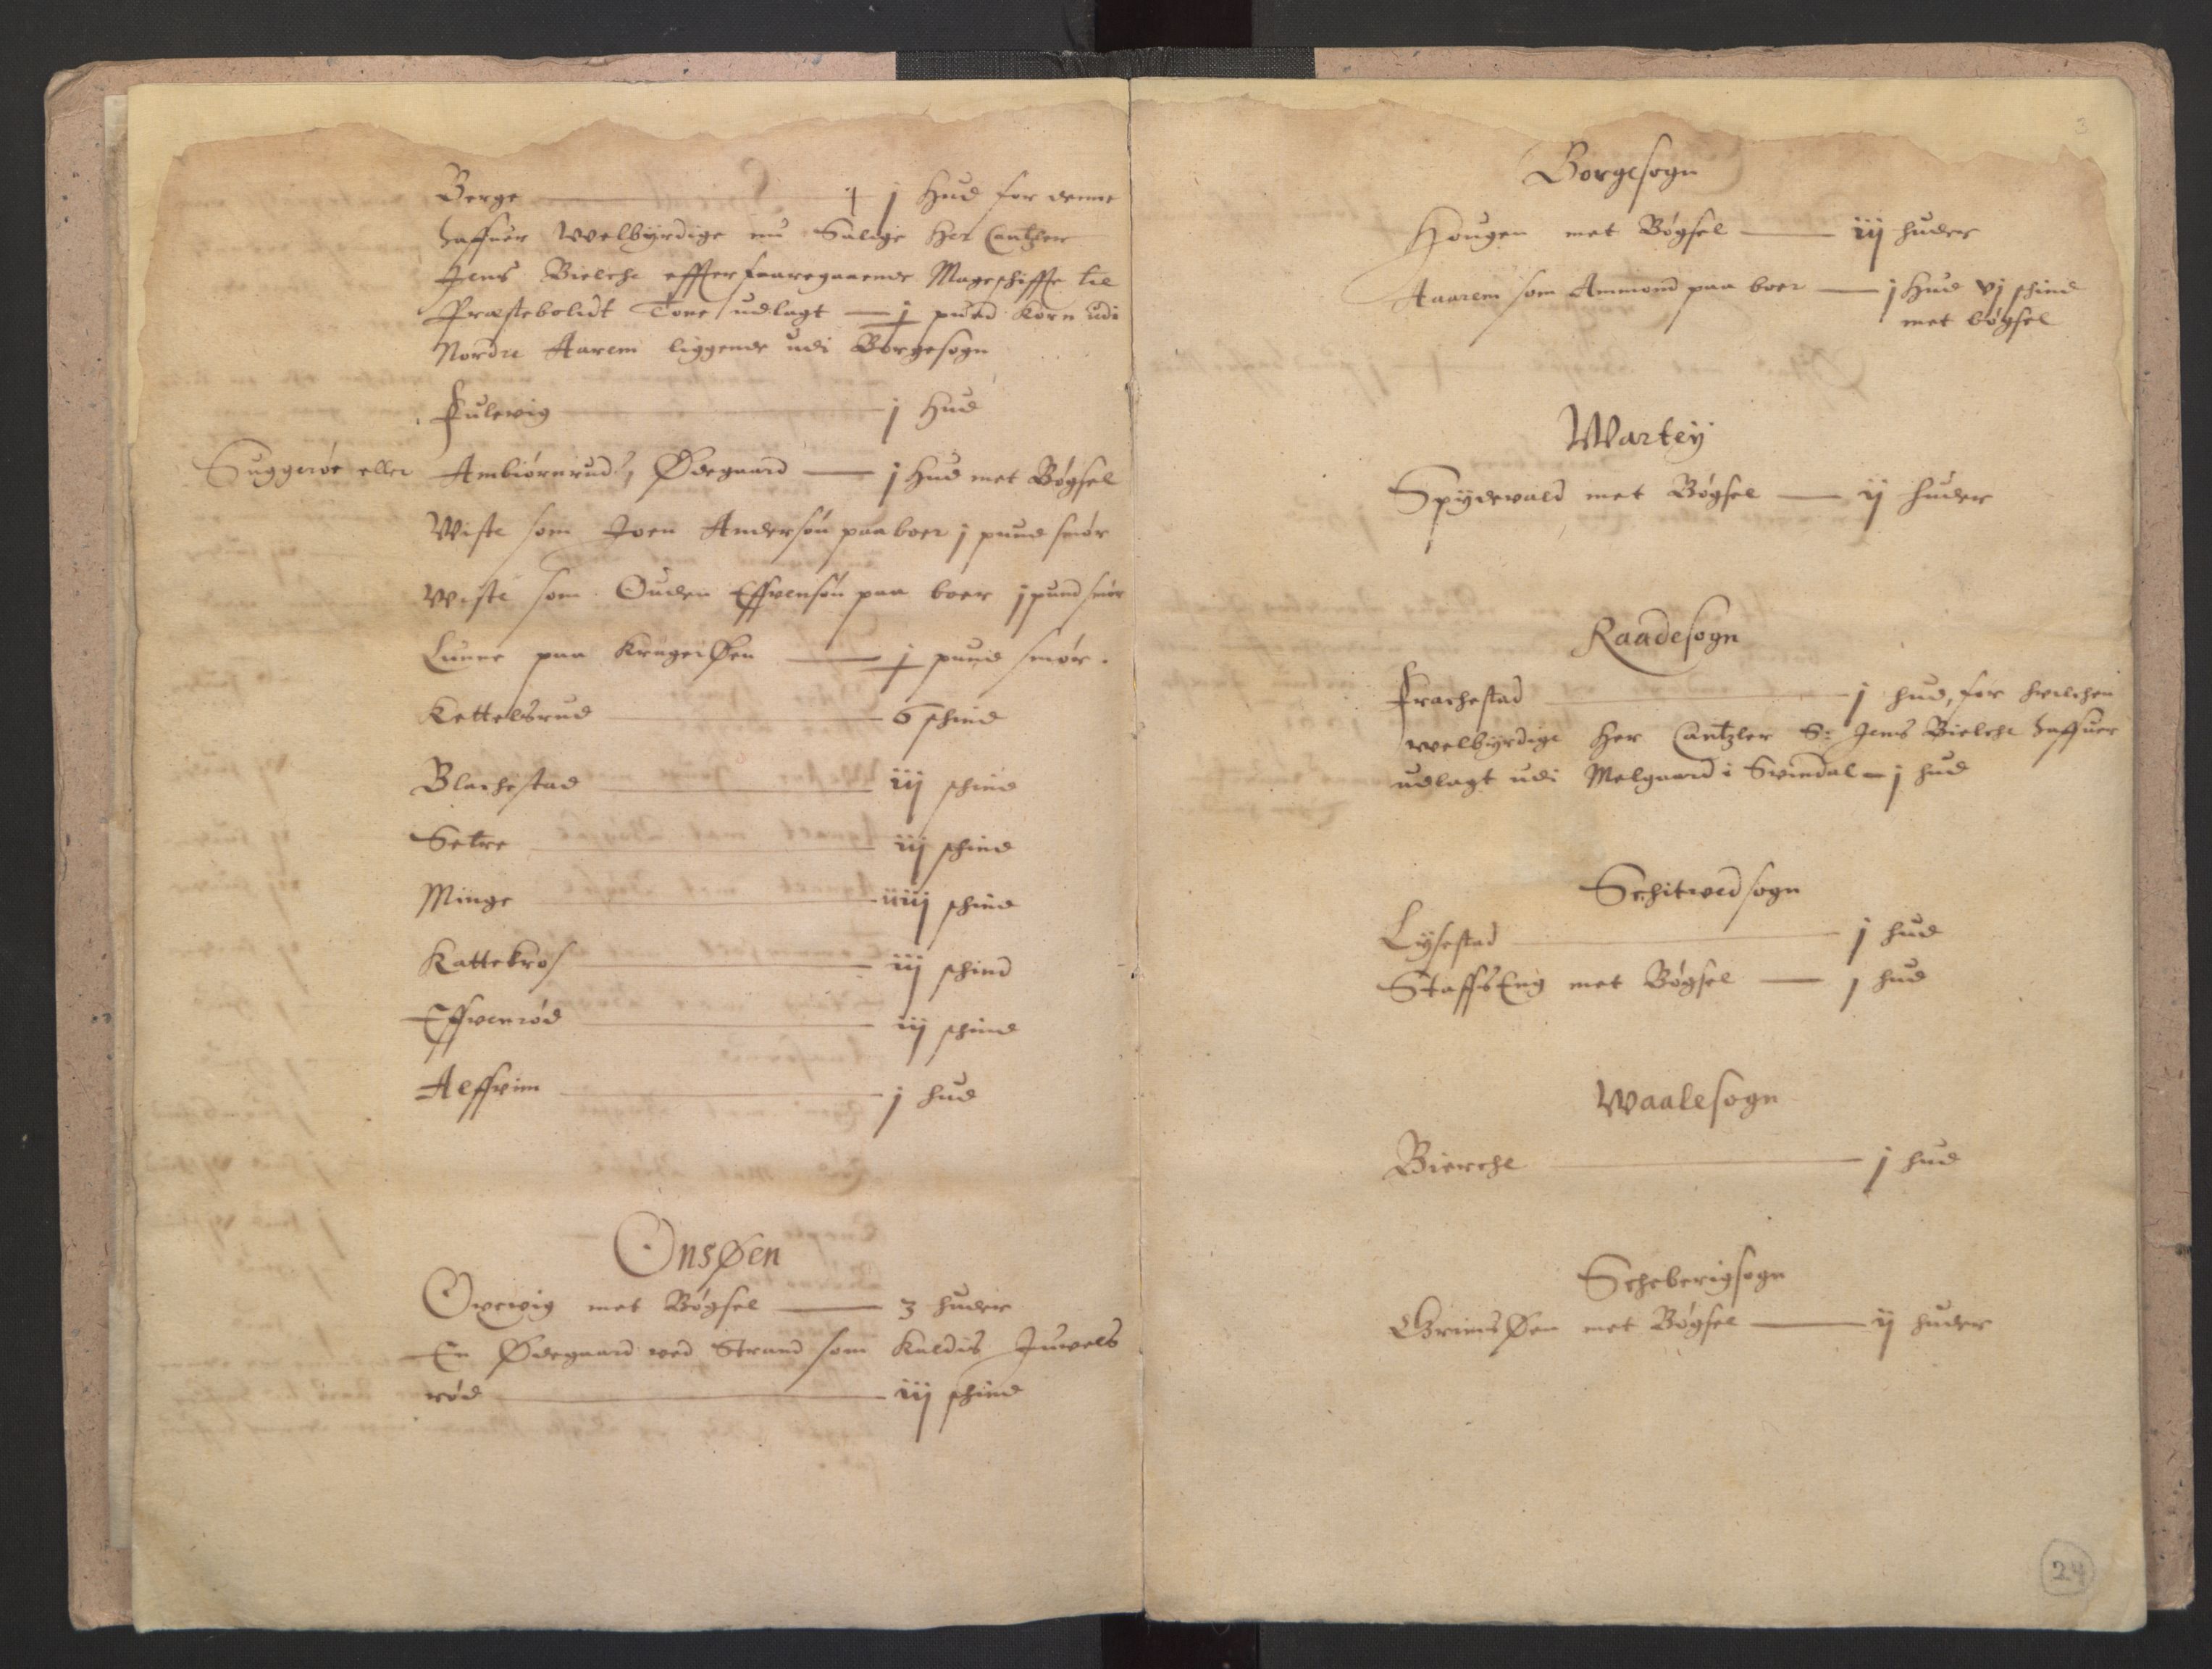 Berge — j Hud for denne
haffuer Welbyrdige nu Salige Her Cantzler
Jens Bielche effter foaregaaende Mageschiffte til
Præsteboldt Tone udlagt — j pund Korn udi
Nordre Aarem liggende udi Borgesogn
Fulevig — j Hud
Suggerøe eller Ambiørnrud, Ødegaard — j Hud met Bøgsel
Wiste som Joen Andersøn paa boer j pund smør
Wiste som Ouden Effvensøn paa boer j pund smør
Lunne paa KragerØen — j pund smør.
Kettelsrud — 6 schind
Blachestad — iij schind
Setre — iij schind
Minge — iiiij schind
Kattebros — iij schind
Effvenrød — iij schind
Alffvim — j hud
OnsØen
Ovevig met Bøgsel — 3 huder
En Ødegaard ved Strand som Kaldis Juvels
rød — iij schind
3
Borgesogn
Hougen met Bøgsel — iij huder
Aarem som Ammond paa boer — j Hud vj schind
met bøgsel
Wartey
Spydevald met Bøgsel — ij huder
Raadesogn
Frachestad — j hud, for hvilchen
welbyrdige Her Cantzler S: Jens Bielche haffuer
udlagt udi Melgaard i Svindal — j hud
Schitved sogn
Lysestad — j hud
StaffsEng met Bøgsel — j hud
Waalesogn
Bierche — j hud
Scheberigsogn
GrimsØen met Bøgsel — ij huder
24